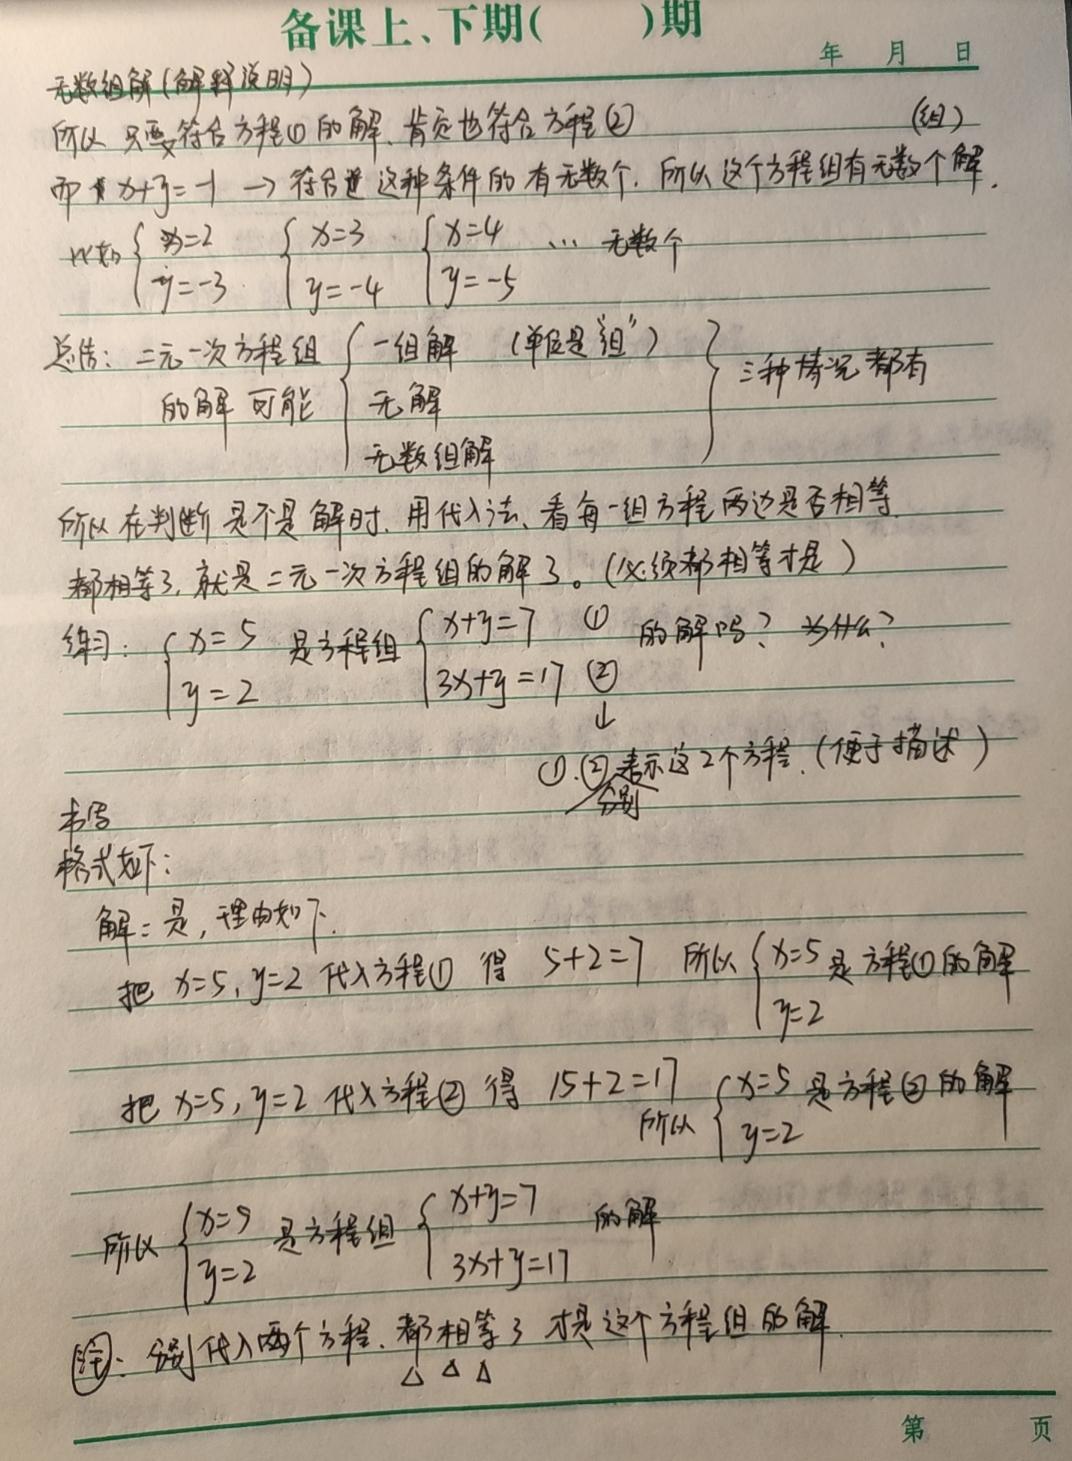 备课上、下期(    )期
年 月 日
无数组解(解释说明)
所以 只要符合方程① 的解、肯定也符合方程② (组)
而 x+y=-1 → 符合 这种条件的 有无数个. 所以这个方程组有无数个解.
比如 { x=2 y=-3 { x=3 y=-4 { x=4 y=-5 … 无数个
总结: 二元一次方程组 的解 可能 { 一组解 (单位是"组") 无解 无数组解 } 三种情况都有
所以 在判断 是不是 解时. 用代入法、看每一组方程 两边是否相等.
都相等了, 就是二元一次方程组的解了。(必须都相等才是)
练习: { x=5 y=2 是方程组 { x+y=7 ① 3x+y=17 ② 的解吗? 为什么?
↓
①.②分别表示这2个方程.(便于描述)
书写
格式如下:
解: 是, 理由如下.
把 x=5, y=2 代入方程① 得 5+2=7 所以 { x=5 y=2 是 方程①的解
把 x=5, y=2 代入方程② 得 15+2=17 所以 { x=5 y=2 是方程②的解
所以 { x=5 y=2 是方程组 { x+y=7 3x+y=17 的解
注: 分别代入两个方程、都相等了 才是这个方程组的解.
△ △ △
第 页